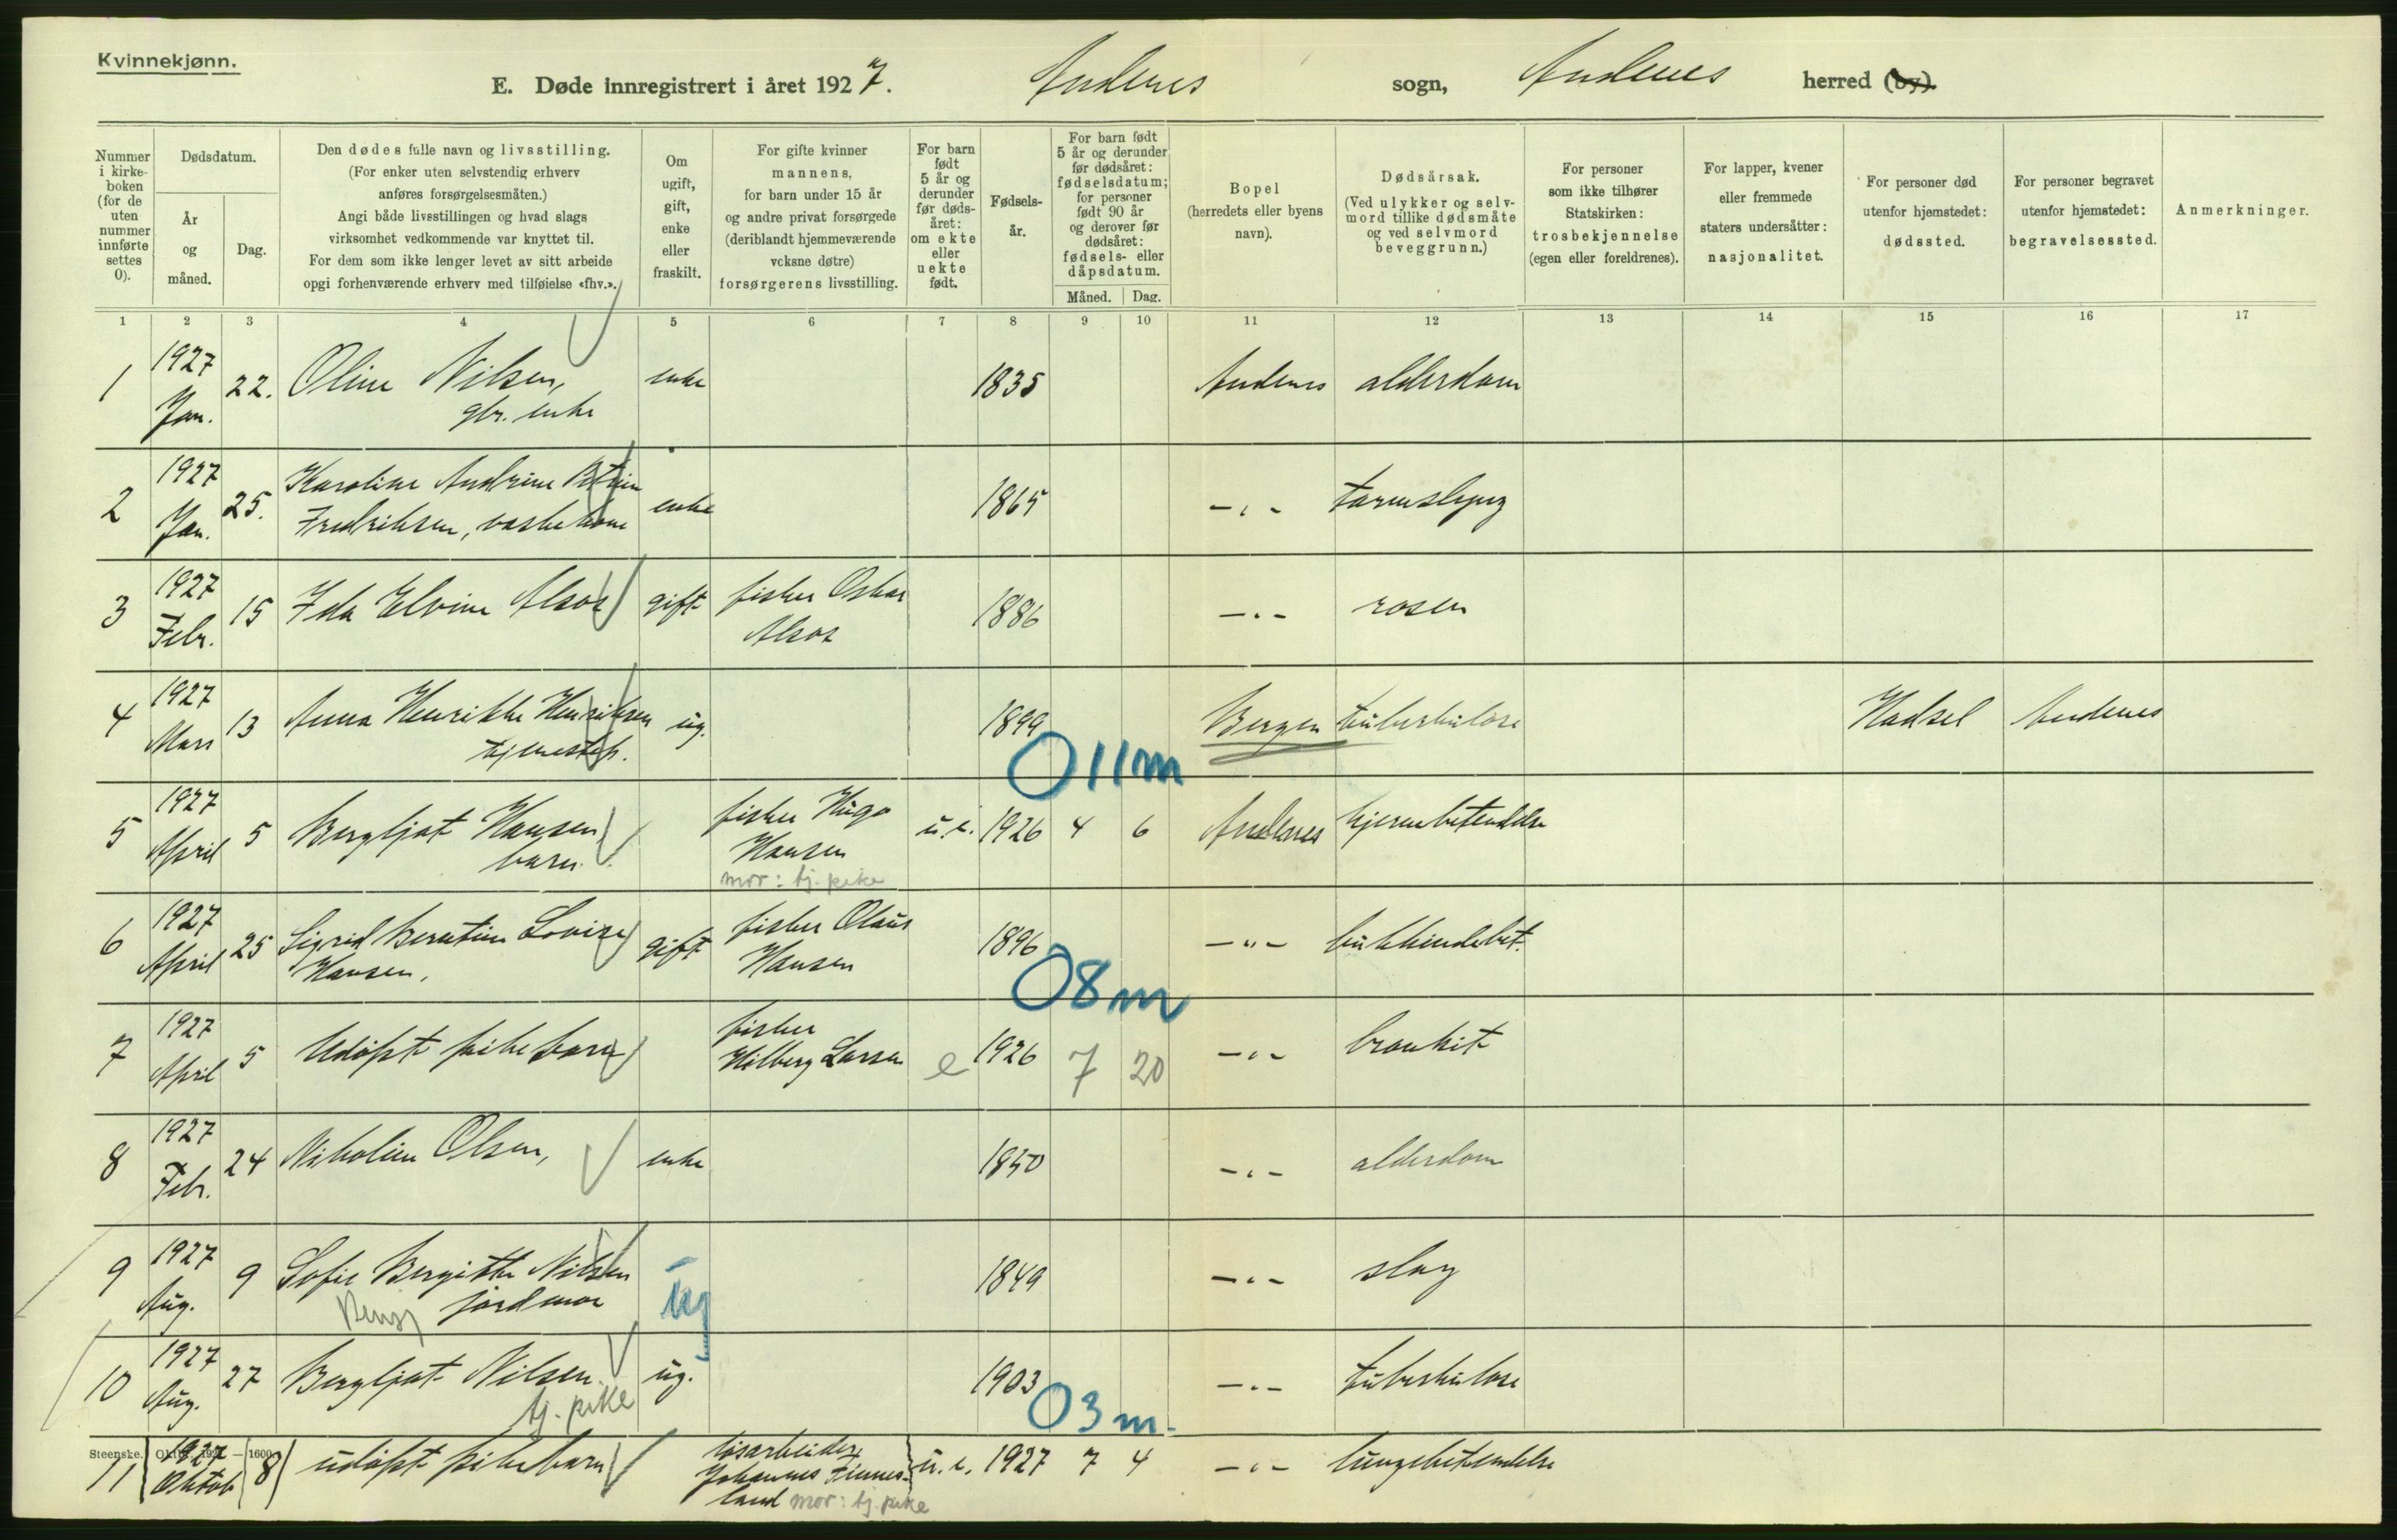 Kvinnekjønn.
E. Døde innregistrert i året 1927. Andenes sogn, Andenes herred (by).
Nummer i kirke-boken (for de uten nummer innførte settes 0).
Dødsdatum.
År og måned.
Dag.
Den dødes fulle navn og livsstilling.
(For enker uten selvstendig erhverv
anføres forsørgelsesmåten.)
Angi både livsstillingen og hvad slags
virksomhet vedkommende var knyttet til.
For dem som ikke lenger levet av sitt arbeide
opgi forhenværende erhverv med tilføielse «fhv.».
Om
ugift,
gift,
enke
eller
fraskilt.
For gifte kvinner
mannens,
for barn under 15 år
og andre privat forsørgede
(deriblandt hjemmeværende
voksne døtre)
forsørgerens livsstilling.
For barn
født
5 år og
derunder
før døds-
året:
om ekte
eller
uekte
født.
Fødsels-
år.
For barn født
5 år og derunder
før dødsåret:
fødselsdatum;
for personer
født 90 år
og derover før
dødsåret:
fødsels- eller
dåpsdatum.
Måned. Dag.
Bopel
(herredets eller byens
navn).
Dødsårsak.
(Ved ulykker og selv-
mord tillike dødsmåte
og ved selvmord
beveggrunn.)
For personer
som ikke tilhører
Statskirken:
trosbekjennelse
(egen eller foreldrenes).
For lapper, kvener
eller fremmede
staters undersåtter:
nasjonalitet.
For personer død
utenfor hjemstedet:
dødssted.
For personer begravet
utenfor hjemstedet:
begravelsessted.
Anmerkninger.
1 2 3 4 5 6 7 8 9 10 11 12 13 14 15 16 17
1 1927 Jan. 22. Oline Nilsen, gbr. enke enke 1835 Andenes alderdom
2 1927 Jan. 25. Karoline Andrine Petrine
Fredriksen, vaskekone enke 1865 -"- tarmslyng
3 1927 Febr. 15 Ida Elvine Alsos gift fisker Oskar
Alsos 1886 -"- rosen
4 1927 Mars 13 Anna Henrikke Henriksen
tjenestep. ug. 1899 Bergen tuberkulose Hadsel Andenes
011m
5 1927 April 5 Bergljot Hansen,
barn. fisker Hugo
Hansen
mor: tj. pike u.e. 1926 4 6 Andenes hjernebetendelse
6 1927 April 25 Sigrid Berntine Lovise
Hansen, gift fisker Olaus
Hansen 1896 -"- bukhindebet.
08m
7 1927 April 5 Udøpt pikebarn fisker
Hilberg Larsen e 1926 7 20 -"- bronkit
8 1927 Febr. 24 Nikoline Olsen, enke 1850 -"- alderdom
9 1927 Aug. 9 Sofie Bergitte Nilsen
pens. jordmor ug 1849 -"- slag
10 1927 Aug. 27 Bergljot Nilsen
tj. pike ug. 1903 -"- tuberkulose
03m.
Steenske. 1600
11 1927 Oktob 8 udøpt pikebarn løsarbeider
Johannes Finnes-
land mor: tj. pike u.e. 1927 7 4 -"- lungebetendelse